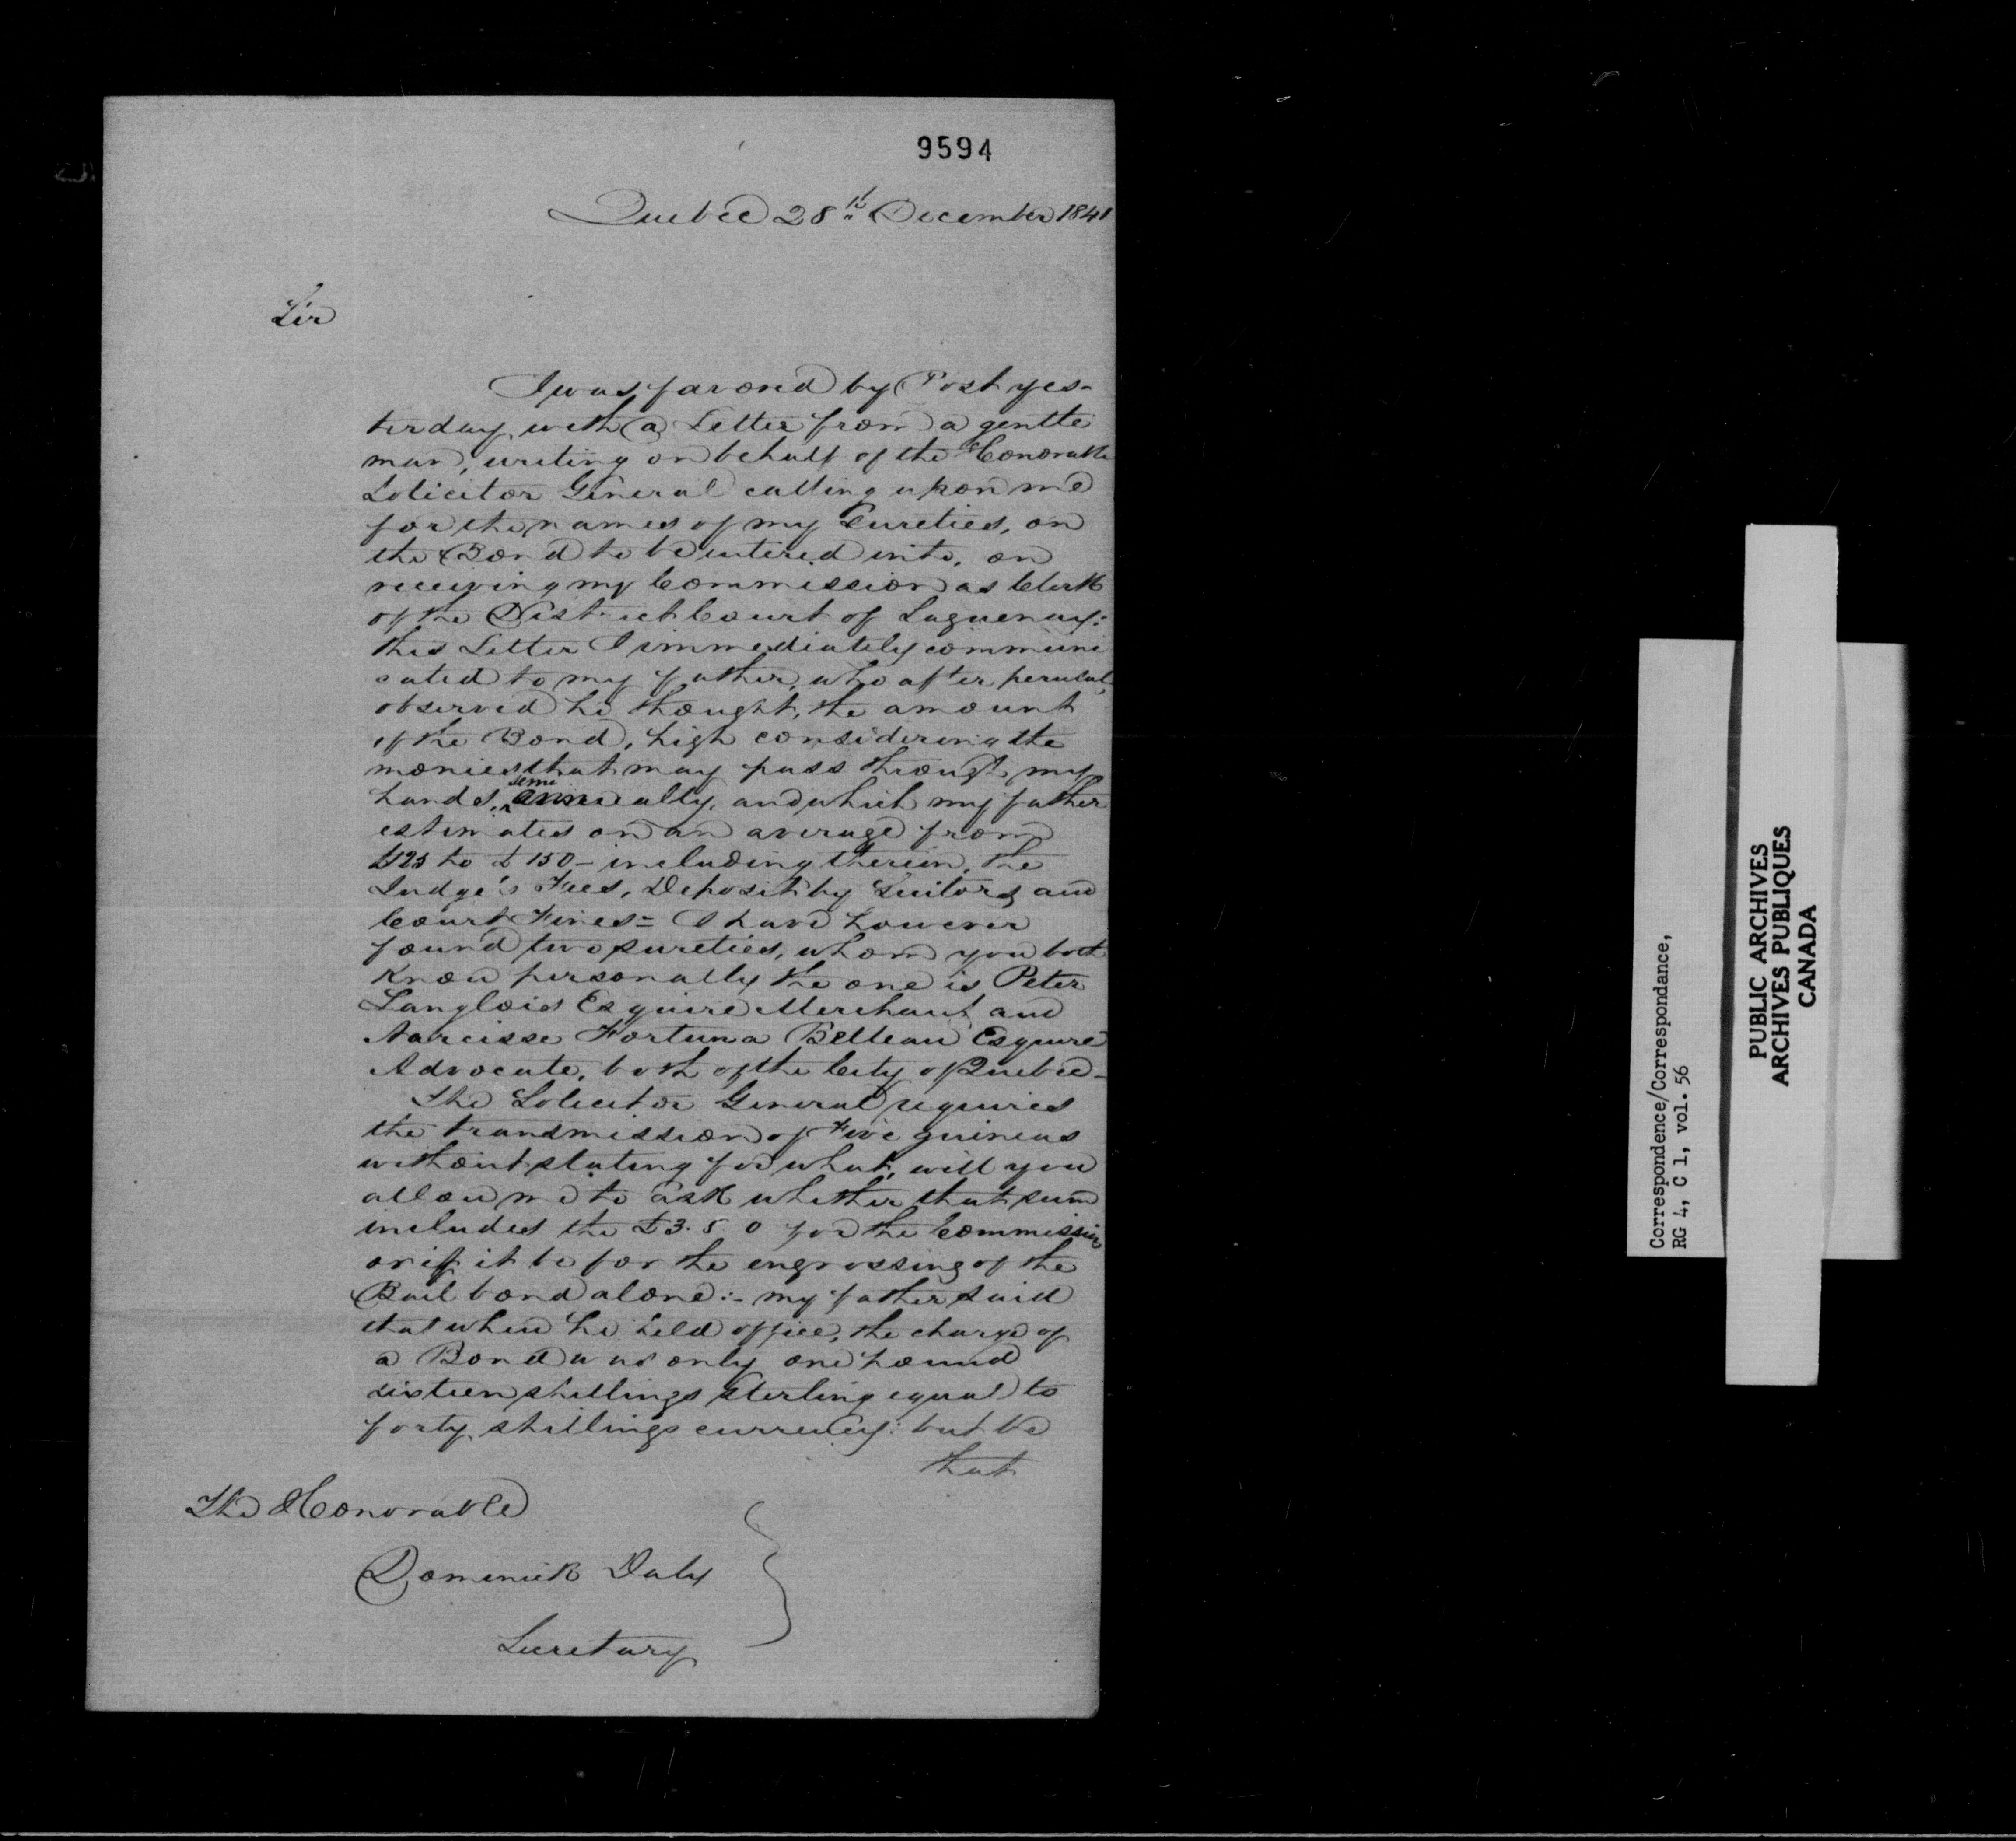 9594
Quebec 28th December 1841
Sir
I was favored by Post yes-
terday with a Letter from a gentle
man, writing on behalf of the Honorable
Solicitor General calling upon me
for the names of my Sureties, on
the Bond to be entered into, on
receiving my Commission as Clerk
of the District Court of Saguenay:
this Letter I immediately communi
cated to my father, who after perusal,
observed he thought, the amount
of the Bond, high considering the
monies that may pass through my
hands, semi annually, and which my father
estimates on an average from
£125 to £150 - including therein, the
Judge's Fees, Deposit by Suitors and
Court Fines = I have however
found two sureties, whom you both
know personally the one is Peter
Langlois Esquire Merchant and
Narcisse Fortuna Belleau Esquire
Advocate, both of the City of Quebec -
The Solicitor General requires
the transmission of Five guineas
without stating for what, will you
allow me to ask whether that sum
includes the £3. 5. 0 for the Commission
or if it be for the engrossing of the
Bail bond alone :- my father said
that when he held office, the charge of
a Bond was only one pound
sixteen shillings sterling equal to
forty shillings currency: but be
that
The Honorable
Dominick Daly
Secretary
Correspondence/Correspondance,
RG 4, C 1, vol. 56
PUBLIC ARCHIVES
ARCHIVES PUBLIQUES
CANADA